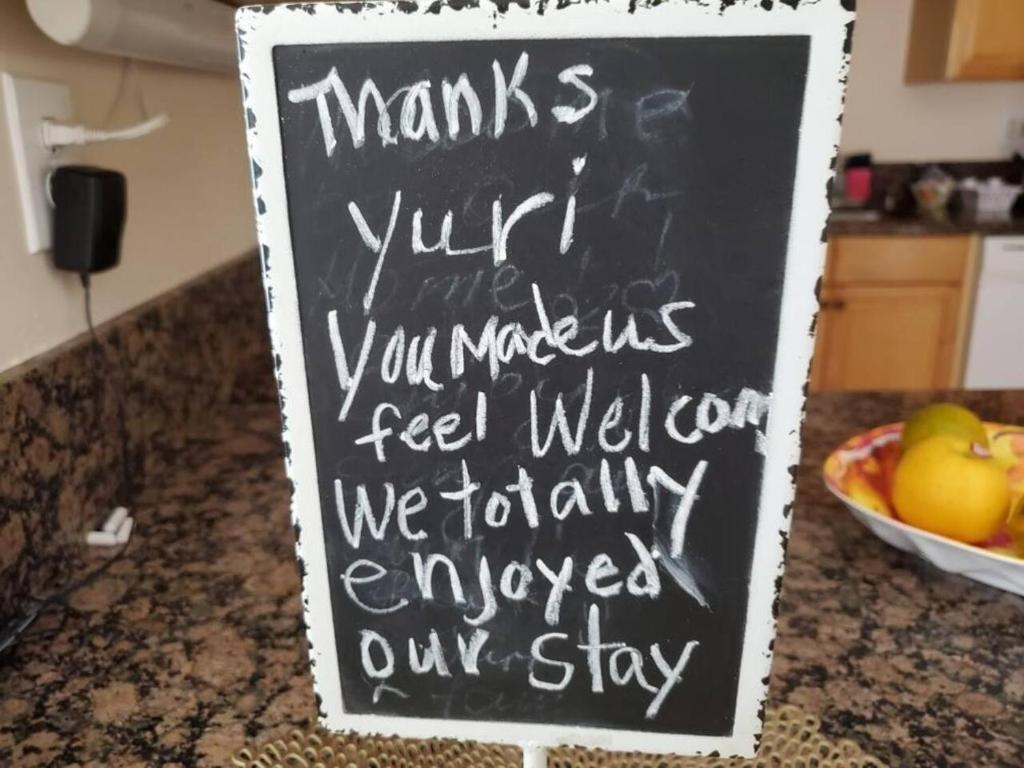 Thanks
Yuri
You Made us
feel Welcom
We totally
enjoyed
our stay